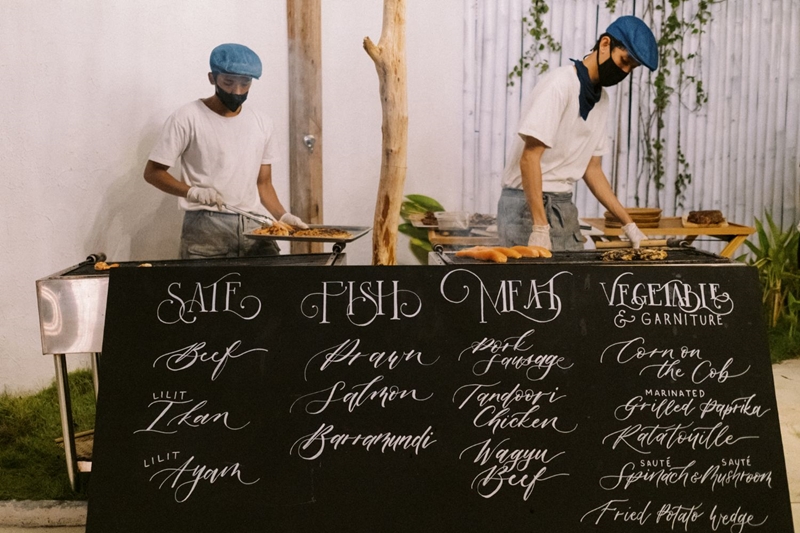 SATE
Beef
LILIT
Ikan
LILIT
Ayam
FISH
Prawn
Salmon
Barramundi
MEAT
Pork
Sausage
Tandoori
Chicken
Wagyu
Beef
VEGETABLE
& GARNITURE
Corn on
the Cob
MARINATED
Grilled Paprika
Ratatouille
SAUTÉ SAUTÉ
Spinach & Mushroom
Fried Potato Wedge